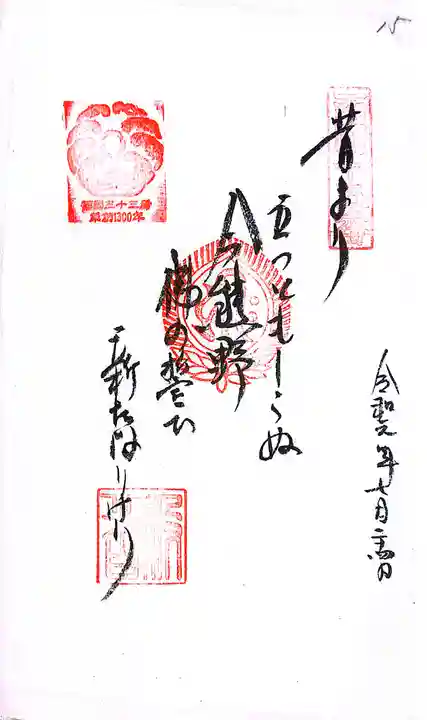 15
昔より
立つともしらぬ
今熊野
佛の誓ひ
新たなりけり
令和元年七月
西国三十三所
草創1300年